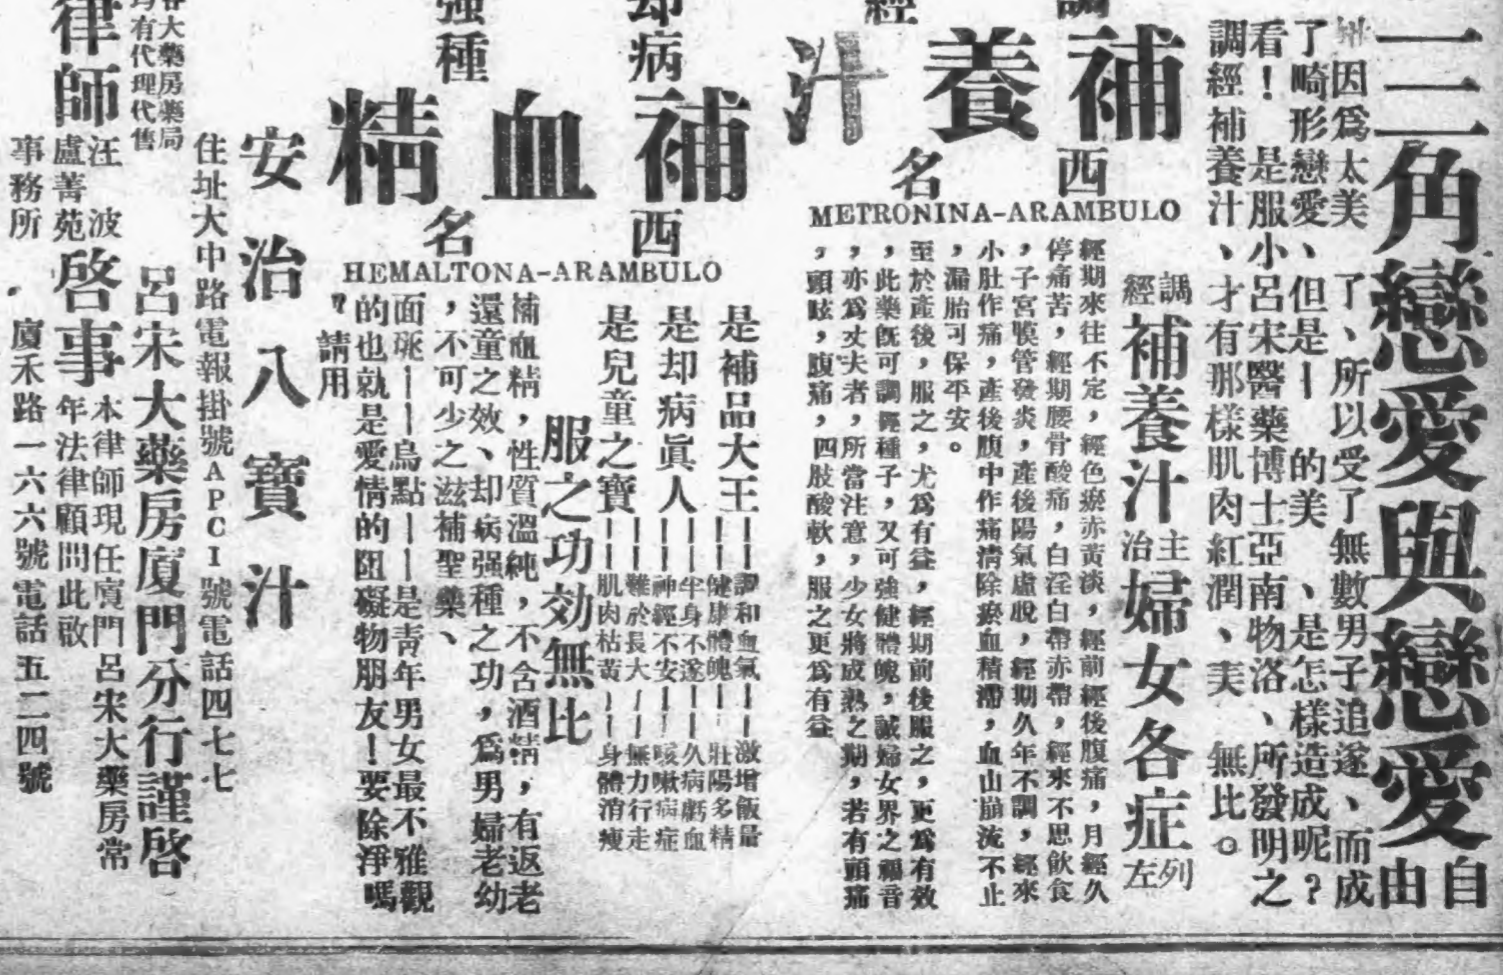 三角戀愛與戀愛自由
州因爲太美　了、所以受了無數男子追逐、而成
了畸形戀愛、但是—　的美　、是怎樣造成呢？
看！　是服小呂宋醫藥博士亞南物洛、所發明之
調經補養汁、才有那樣肌肉紅潤、美　無比。
調經
補養汁
西名
METRONINA-ARAMBULO
調經補養汁主治婦女各症列左
經期來往不定，經色瘀赤黃淡，經前經後腹痛，月經久
停痛苦，經期腰骨酸痛，白淫白帶赤帶，經來不思飲食
，子宮膜管發炎，產後陽氣虛脫，經期久年不調，經來
小肚作痛，產後腹中作痛清除瘀血積滯，血山崩流不止
，漏胎可保平安。
至於產後，服之，尤爲有益，經期前後服之，更爲有效
，此藥旣可調經種子，又可強健體魄，誠婦女界之福音
，亦爲丈夫者，所當注意，少女將成熟之期，若有頭痛
，頭眩，腹痛，四肢酸軟，服之更爲有益
却病
强種
補血精
西名
HEMALTONA-ARAMBULO
是補品大王
調和血氣——激增飯量
健康體魄——壯陽多精
是却病眞人
半身不遂——久病虧血
神經不安——咳嗽病症
是兒童之寶
難於長大——無力行走
肌肉枯黃——身體消瘦
服之功效無比
補血精，性質溫純，不含酒精，有返老
還童之效、却病强種之功，爲男婦老幼
，不可少之滋補聖藥、
面班——烏點——是靑年男女最不雅觀
的也就是愛情的阻礙物朋友！要除淨嗎
？請用
安治八寶汁
住址大中路電報掛號APCI號電話四七七
呂宋大藥房廈門分行謹啓
各大藥房藥局
均有代理代售
律師
汪　波
盧菁苑
啓事
本律師現任廈門呂宋大藥房常
年法律顧問此啟
事務所
廈禾路一六六號電話五二四號